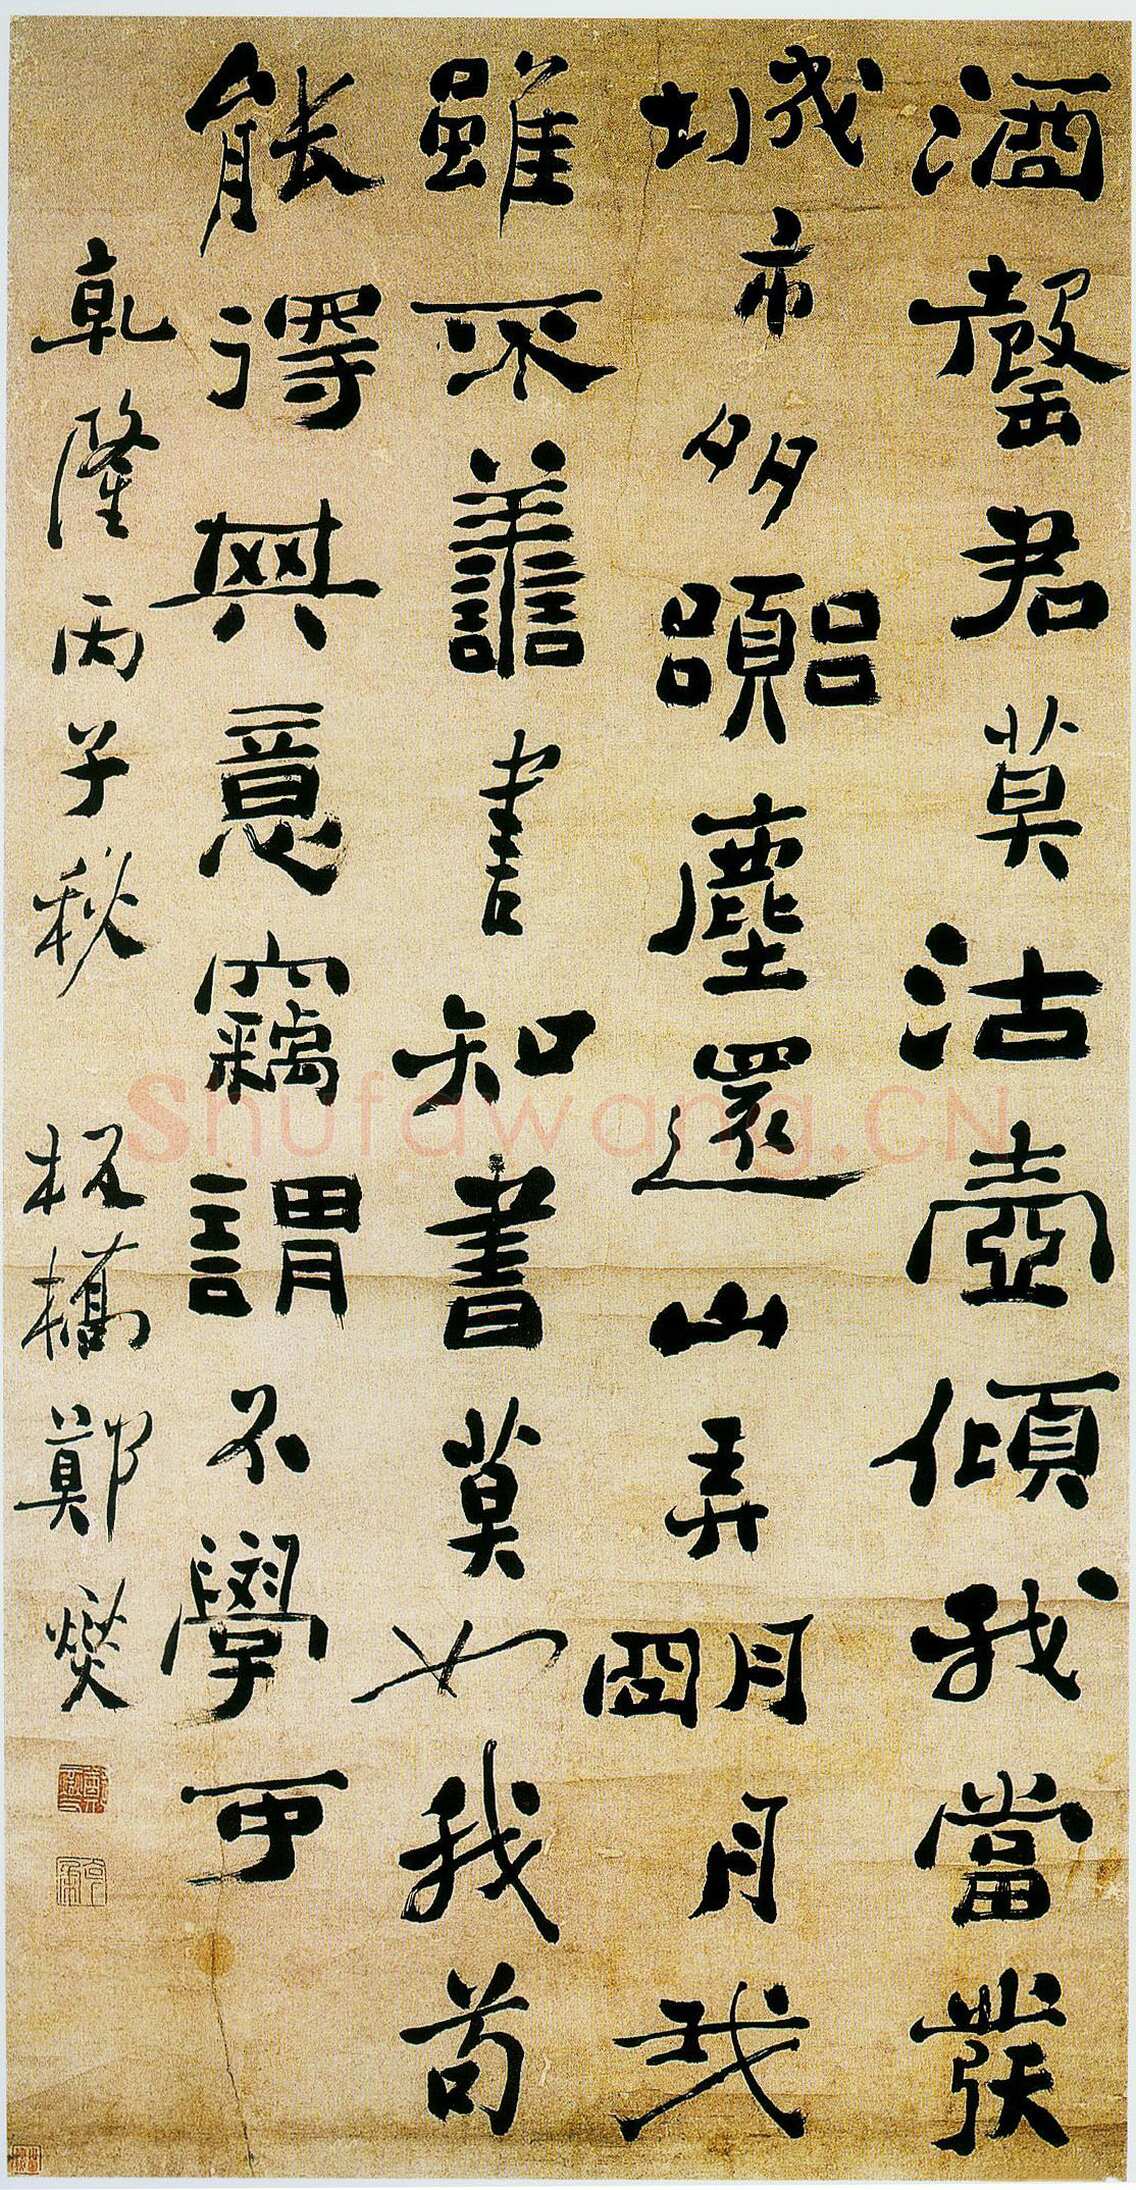 酒罄君莫沽壺傾我當發
城市多囂塵還山弄明月我
雖不善書知書莫如我苟
能得其意竊謂不學可
乾隆丙子秋 板橋鄭燮
Shufawang.CN